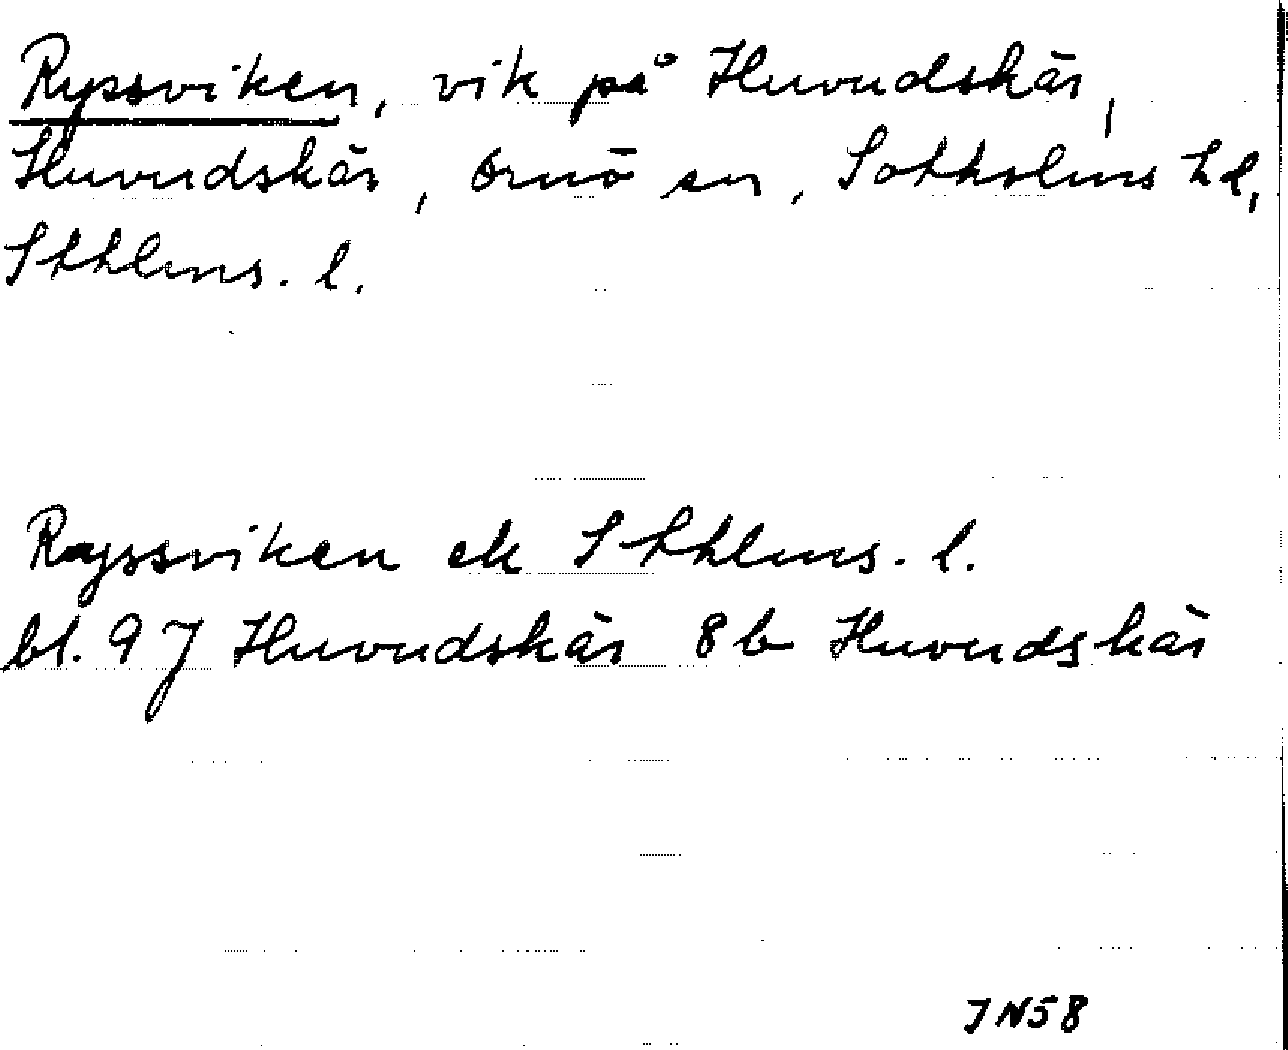 Ryssviken, vik på Huvudskär,
Huvudskär, Ornö sn, Sotholms hd,
Sthlms. l.
Ryssviken ek Sthlms. l.
bl. 97 Huvudskär 8b Huvudskär
JN58